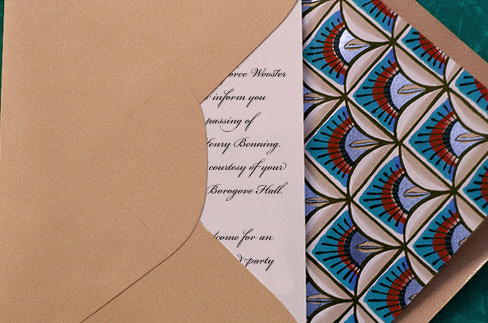 orce Wooster
inform you
passing of
enry Benning.
courtesy of your
Borogove Hall.
lcome for an
party